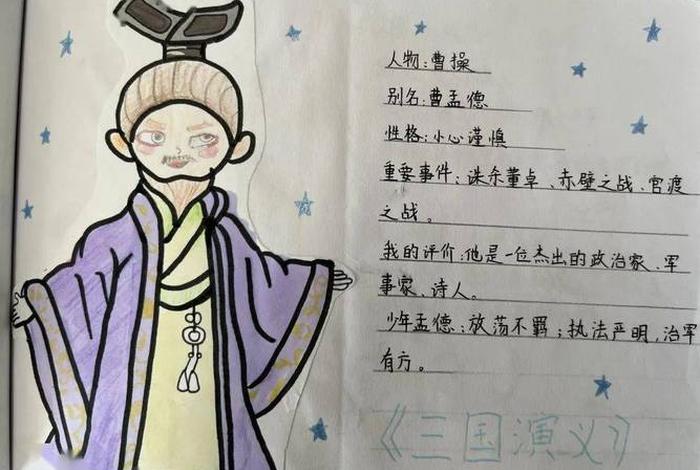 人物:曹操
别名:曹孟德
性格:小心谨慎
重要事件:诛杀董卓、赤壁之战、官渡
之战。
我的评价:他是一位杰出的政治家、军
事家、诗人。
少年孟德:放荡不羁;执法严明,治军
有方。
《三国演义》